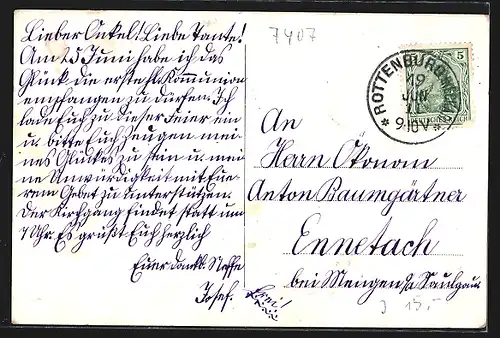 Lieber Onkel! Liebe Tante!
Am 25 Juni habe ich das
Glück die erste hl. Kommunion
empfangen zu dürfen. Ich
lade Euch zu dieser Feier ein
u. bitte Euch Zeugen mei-
nes Glückes zu sein u. mei-
ne Unwürdigkeit mit Eue-
rem Gebet zu unterstützen.
Der Kirchgang findet statt um
7 Uhr. Es grüßt Euch herzlich
Euer dankb. Neffe
Josef.
7407
ROTTENBURG
19
JUN
9-10V
5
DEUTSCHES REICH
An
Herrn Ökonom
Anton Baumgärtner
Ennetach
bei Mengen o/a Saulgau
15.-